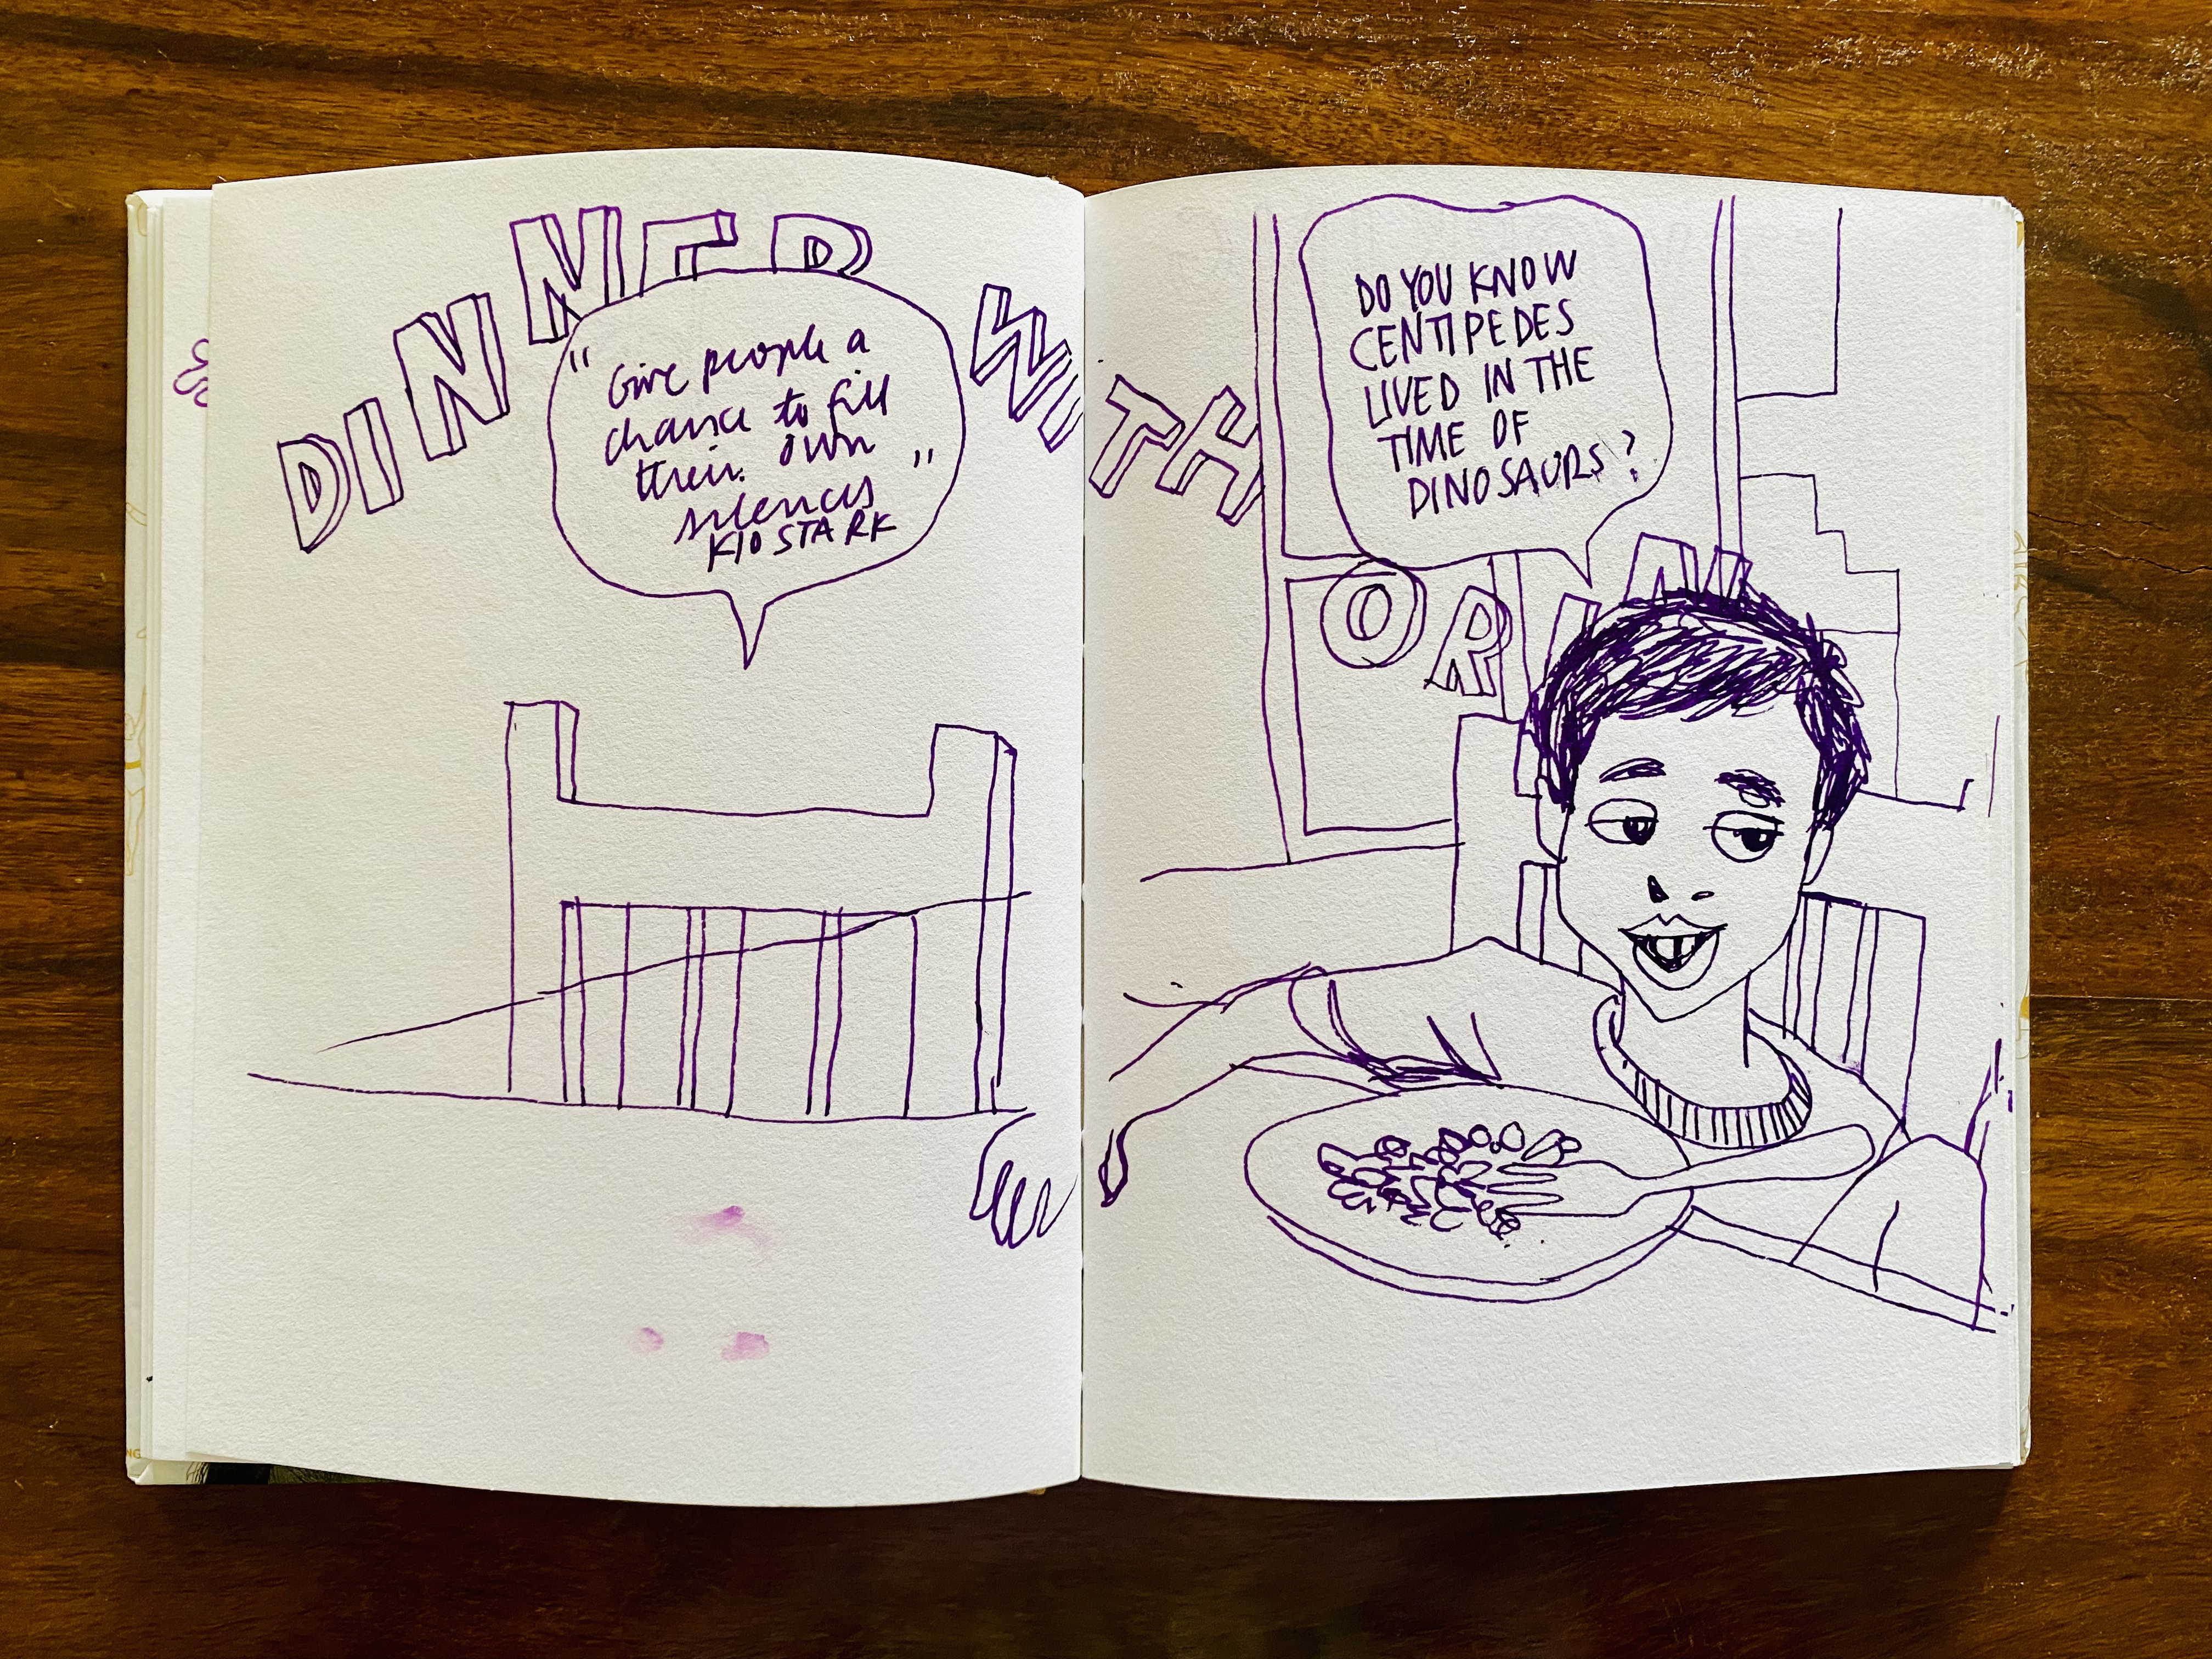 DINNER WITH
"Give people a
chance to fill
their own
silences"
KIO STARK
DO YOU KNOW
CENTIPEDES
LIVED IN THE
TIME OF
DINOSAURS?